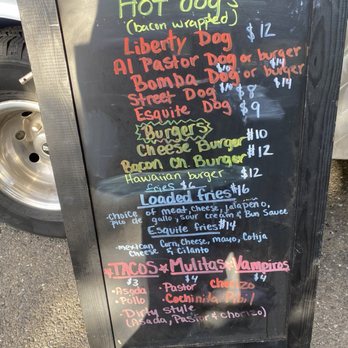 HOT dogs
(bacon wrapped)
Liberty Dog $12
Al Pastor Dog or burger
$10 $14
Bomba Dog or burger
$10 $14
Street Dog $8
Esquite Dog $9
Burgers
Cheese Burger $10
Bacon Ch. Burger $12
Hawaiian burger $12
fries $6
Loaded fries $16
choice of meat, cheese, jalapeño,
pico de gallo, sour cream & Bun Sauce
Esquite fries $14
mexican Corn, Cheese, mayo, Cotija
Cheese & Cilanto
TACOS Mulitas Vampiros
$3 $4 $4
•Asada •Pastor chorizo
•Pollo •Cochinita Pibil
•Dirty style
(Asada, Pastor & chorizo)